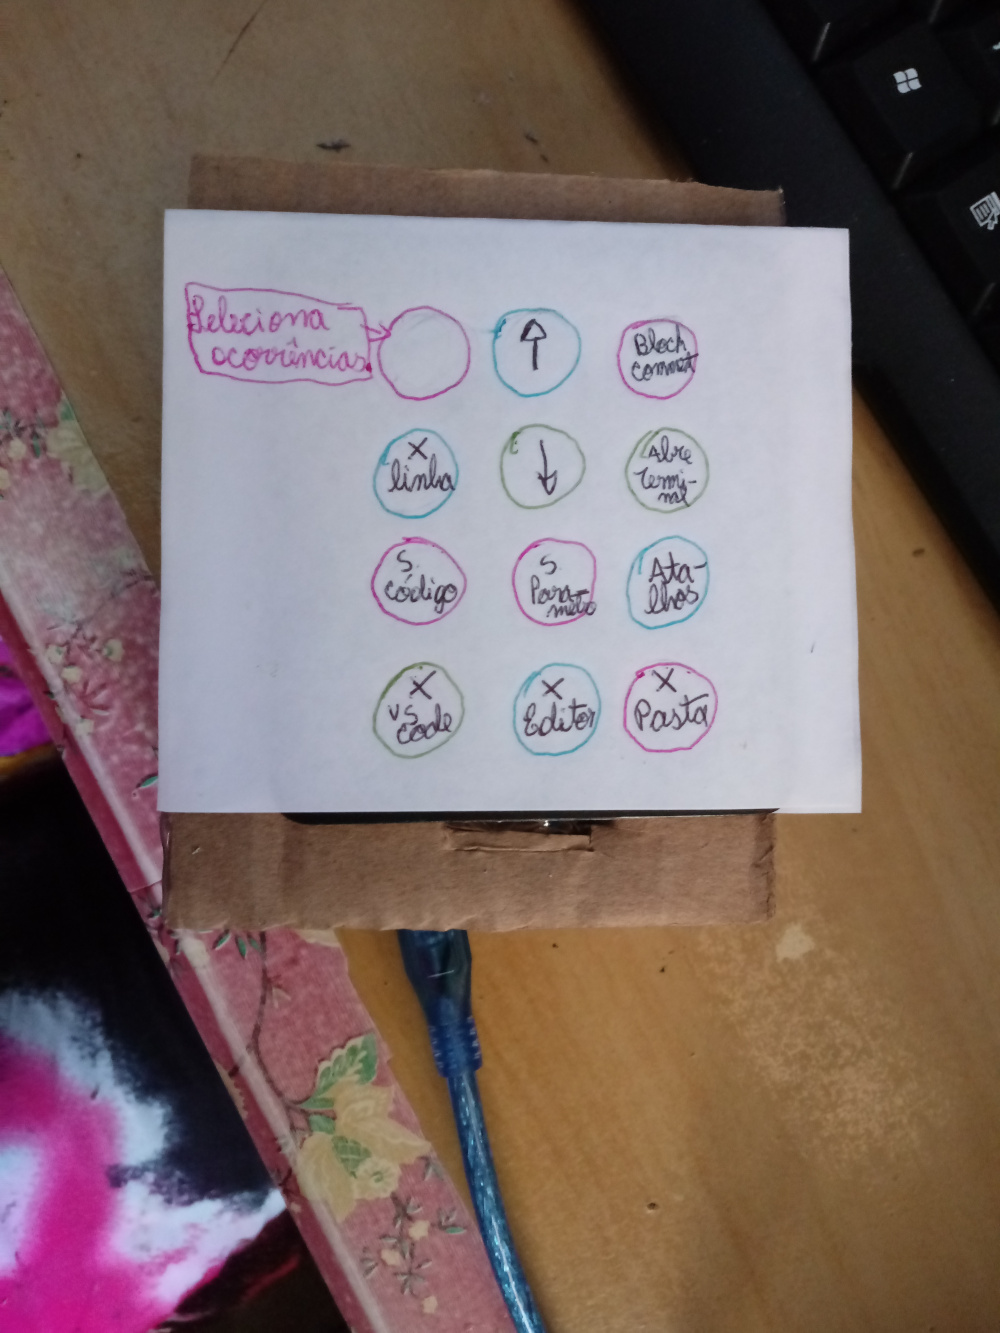 Seleciona
ocorrências
↑
Block
comment
X
linha
↓
Abre
Termi-
nal
S.
código
S.
Para-
metro
Ata-
lhos
X
VS
code
X
Editor
X
Pasta